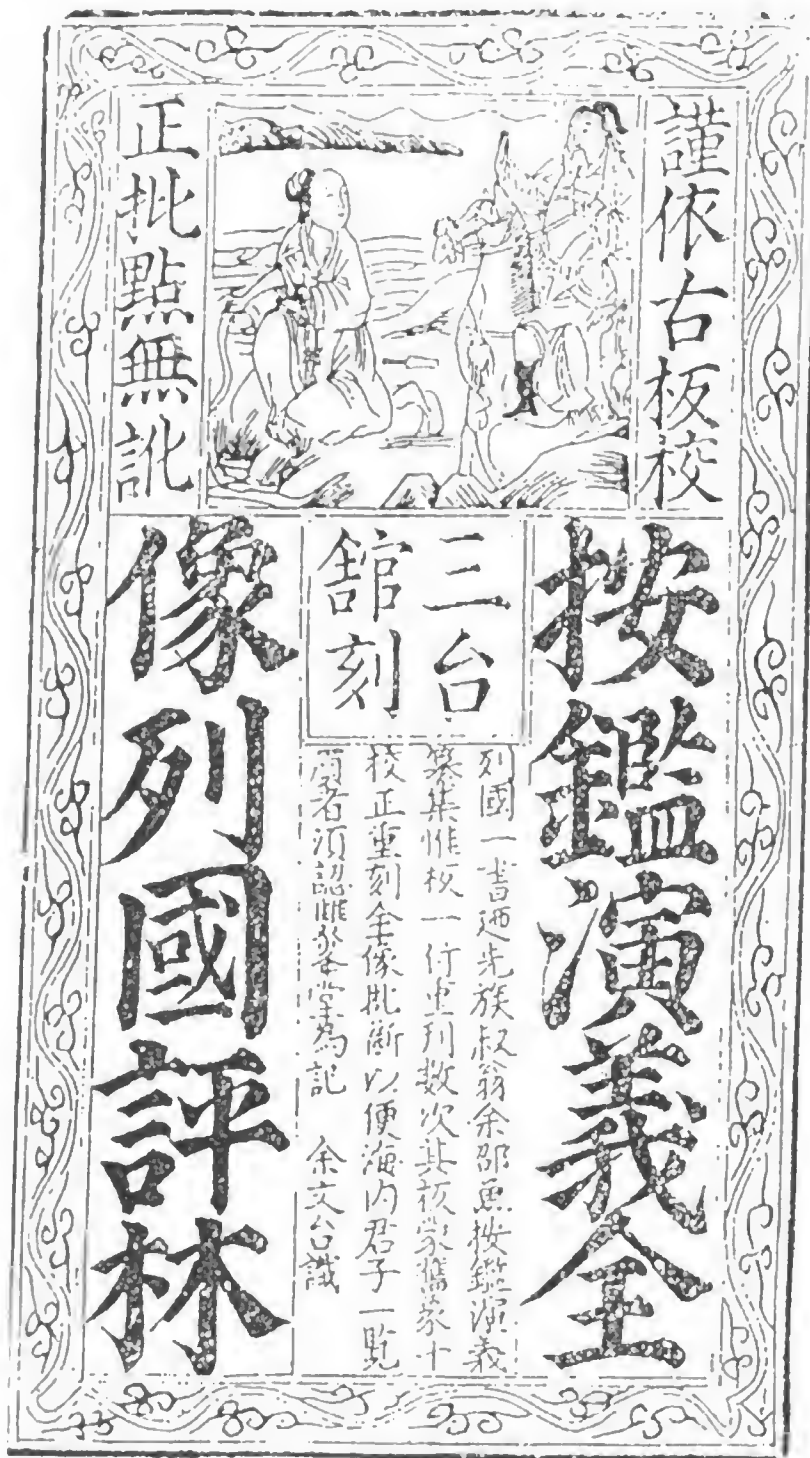 謹依古板校
正批點無訛
按鑑演義全
三台
舘刻
列國一書廼先族叔翁余邵魚按鑑演義
纂集惟板一付重刊數次其板蒙舊象斗
校正重刻全像批斷以便海內君子一覽
買者須認雙峯堂為記 余文台識
像列國評林